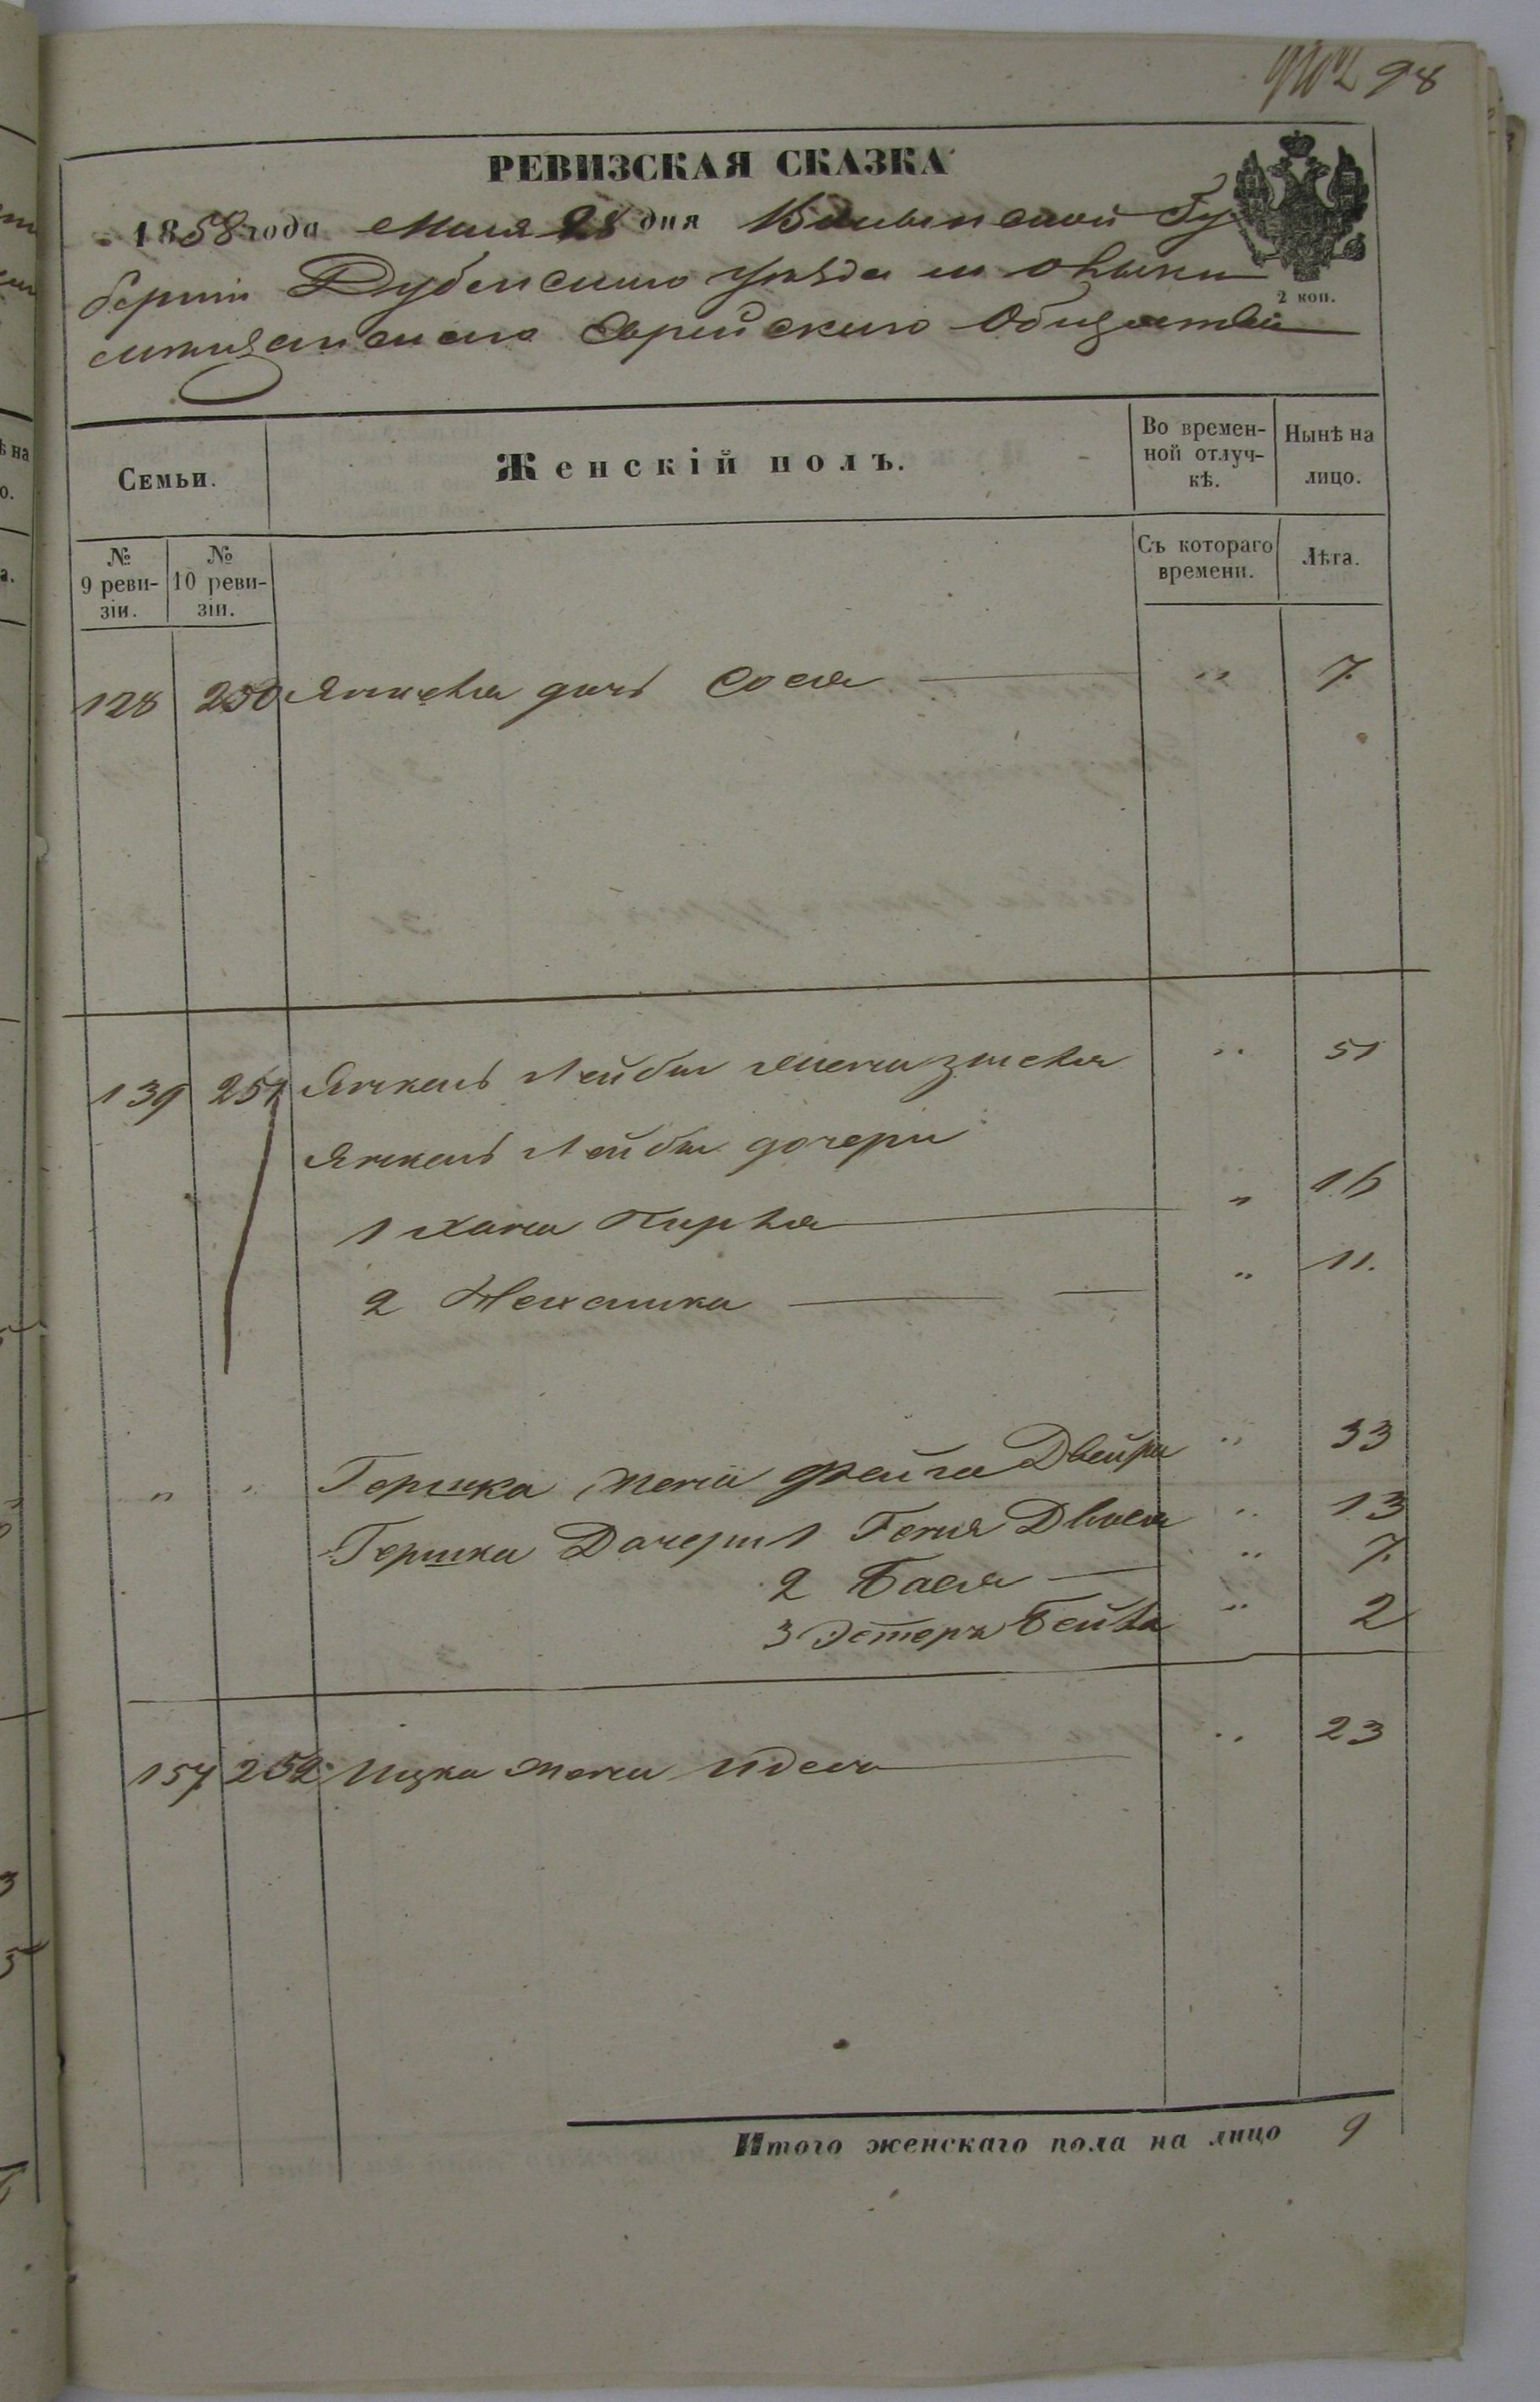 98
РЕВИЗСКАЯ СКАЗКА
1858 года Мая 28 дня Волынской Гу
берніи Дубенскаго Уѣзда м
мѣщанскаго Еврейскаго Общества
2 коп.
Семьи. Женскій полъ. Во времен-ной отлуч-кѣ. Нынѣ на лицо.
№ 9 реви-зіи. № 10 реви-зіи. Съ котораго времени. Лѣта.
128 250 дочь Сося " 7
139 251 Янкель Лейбы жена " 51
Янкель Лейбы дочери
1 Хана " 16
2 " 11.
" " Гершка жена Фейга Двейра " 33
Гершка Дочери 1 Геня Двося " 13
2 Бася " 7.
3 Эстеръ Бейла " 2
157 252 Ицка жена Идеса " 23
Итого женскаго пола на лицо 9